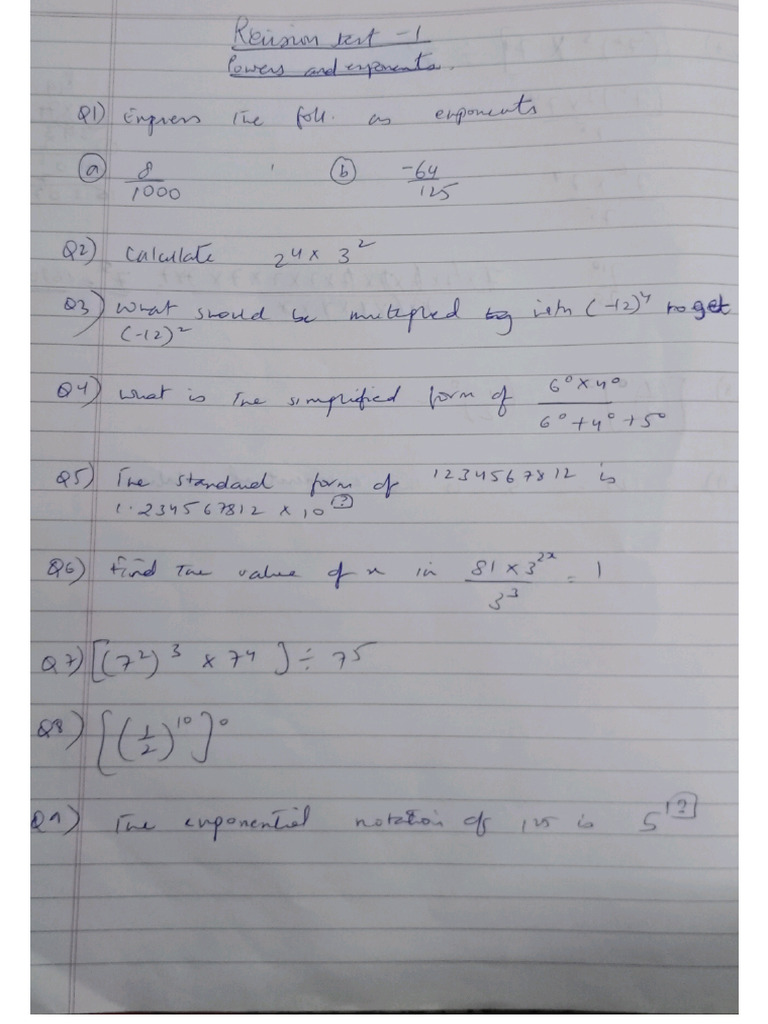 Revision test - 1
Powers and exponents.
Q1) Express the foll. as exponents
(a) 8/1000 , (b) -64/125
Q2) Calculate 2⁴ × 3²
Q3) What should be multiplied into (-12)⁴ to get
(-12)²
Q4) What is the simplified form of 6⁰×4⁰ / 6⁰+4⁰+5⁰
Q5) The standard form of 1234567812 is
1.234567812 × 10^[?]
Q6) Find the value of x in 81×3^2x / 3³ = 1
Q7) [(7²)³ × 7⁴] ÷ 75
Q8) [(1/2)¹⁰]⁰
Q9) The exponential notation of 125 is 5^[?]